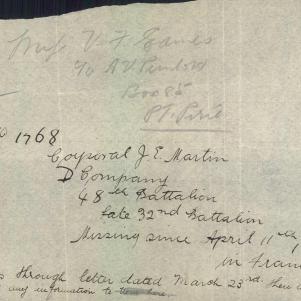 Miss V. F. Eames
c/o A V Penlold
Box 85
Pt. Pirie
No 1768
Corporal J. E. Martin
D Company
48th Battalion
Late 32nd Battalion
Missing since April 11th
in Fran
through letter dated March 23rd.
any information to